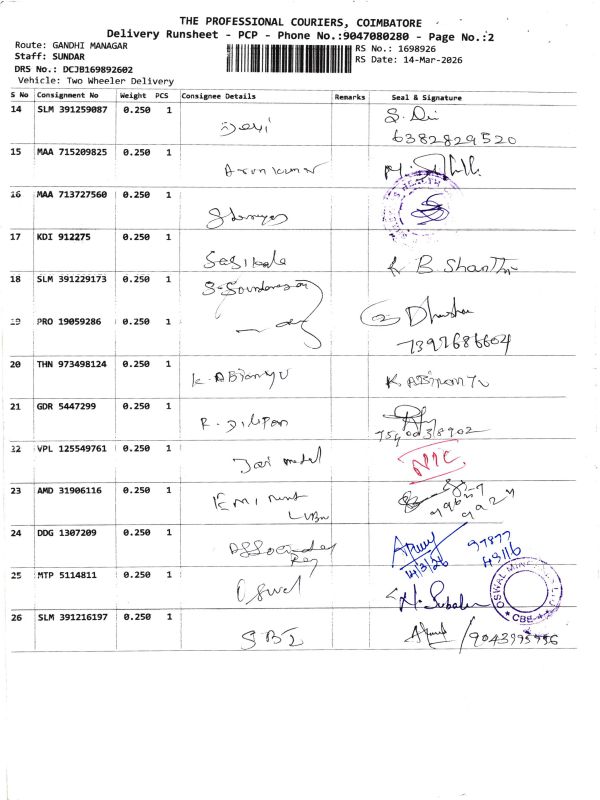 THE PROFESSIONAL COURIERS, COIMBATORE
Delivery Runsheet - PCP - Phone No.:9047080280 - Page No.:2
Route: GANDHI MANAGAR
RS No.: 1698926
Staff: SUNDAR
RS Date: 14-Mar-2026
DRS No.: DCJB169892602
Vehicle: Two Wheeler Delivery
S No Consignment No Weight PCS Consignee Details Remarks Seal & Signature
14 SLM 391259087 0.250 1 Devi
6382829520
15 MAA 715209825 0.250 1 Arunkumar
16 MAA 713727560 0.250 1
17 KDI 912275 0.250 1 Sasikala B Shanthi
18 SLM 391229173 0.250 1 S. Soundararajan
19 PRO 19059286 0.250 1
7397686604
20 THN 973498124 0.250 1 K. ABIANYU
21 GDR 5447299 0.250 1 R. Dilipan
7540038902
22 VPL 125549761 0.250 1 Jai medal NIC
23 AMD 31906116 0.250 1
24 DDG 1307209 0.250 1
14/3/26
97877
43116
25 MTP 5114811 0.250 1 Oswal
OSWAL
CBE-4
26 SLM 391216197 0.250 1 SBI 9043995956